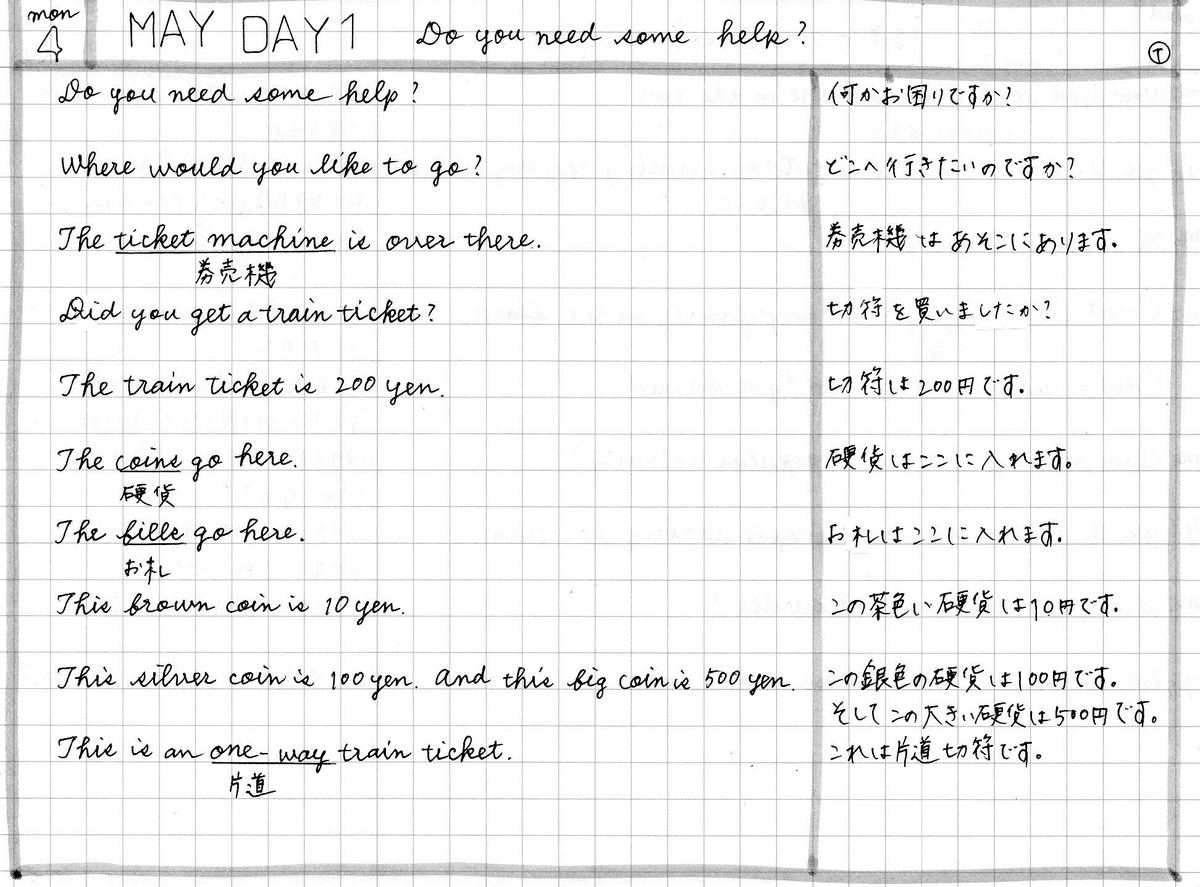 mon
4
MAY DAY 1 Do you need some help?
T
Do you need some help? 何かお困りですか?
Where would you like to go? どこへ行きたいのですか?
The ticket machine is over there. 券売機はあそこにあります。
券売機
Did you get a train ticket? 切符を買いましたか?
The train ticket is 200 yen. 切符は200円です。
The coins go here. 硬貨はここに入れます。
硬貨
The bills go here. お札はここに入れます。
お札
This brown coin is 10 yen. この茶色い硬貨は10円です。
This silver coin is 100 yen. And this big coin is 500 yen. この銀色の硬貨は100円です。
そしてこの大きい硬貨は500円です。
This is an one-way train ticket. これは片道切符です。
片道